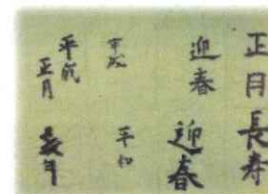 正月長寿
迎春
迎春
平成
平和
平成
正月
長寿